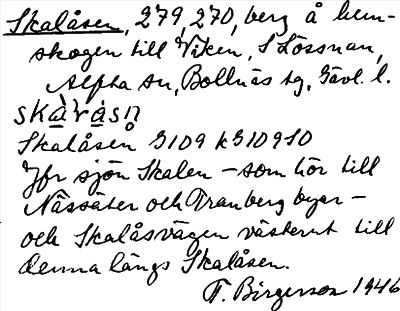 Skalåsen, 279, 270, berg å hem-
skogen till Viken, S Lössnan,
Alfta sn, Bollnäs tg, Gävl. l.
skàràsn
Skalåsen 3109 k310910
Jfr sjön Skalen – som hör till
Nässäter och Tranberg byar –
och Skalåsvägen västerut till
denna längs Skalåsen.
F. Birgerson 1946